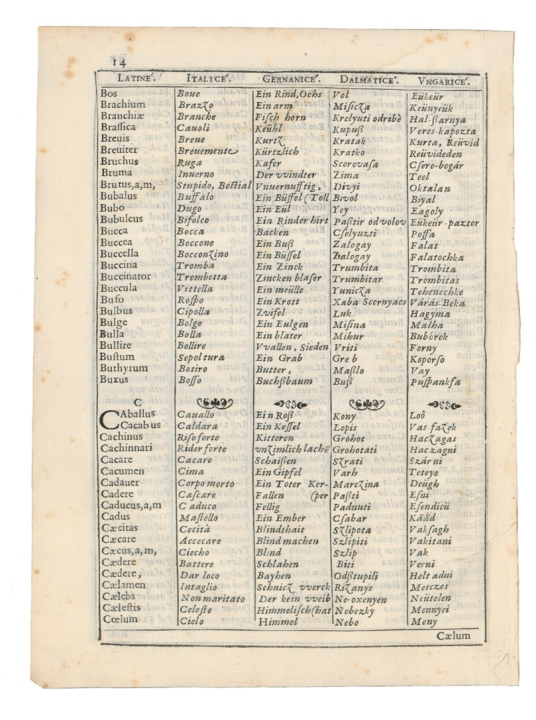 14
LATINE. ITALICE. GERMANICE. DALMATICE. VNGARICE.
Bos Boue Ein Rind, Ochs Vol Eükeür
Brachium Brazzo Ein arm Misicza Keünyeük
Branchiæ Branche Fisch horn Krelyuti odribè Hal ßarnya
Brassica Cauoli Keühl Kupuß Veres kapozta
Breuis Breue Kurtz Kratak Kurta, Reüvid
Breuiter Breuemente Kürtzlich Kratko Reüvideden
Bruchus Ruga Kafer Scorovasa Csere-bogár
Bruma Inuerno Der vvindter Zima Teel
Brutus,a,m, Stupido, Bestial Vnuernufftig, Divyi Oktalan
Bubalus Buffalo Ein Büffel (Toll Bivol Biyal
Bubo Dugo Ein Eül Yey Eagoly
Bubulcus Bifolco Ein Rinder hirt Paßtir od volov Eükeür-paztor
Bucca Bocca Backen Cselyuzti Possa
Buccea Boccone Ein Buß Zalogay Falat
Buccella Bocconzino Ein Büssel Zalogay Falatochka
Buccina Tromba Ein Zinck Trumbita Trombita
Buccinator Trombetta Zincken blaser Trumbitar Trombitas
Buccula Vittella Ein meülle Yunicza Tehenechke
Bufo Rospo Ein Krott Xaba Scernyacs Várás Beka
Bulbus Cipolla Zvifel Luk Hagyma
Bulge Bolge Ein Eulgen Misina Malha
Bulla Bolla Ein blater Mihur Bubórek
Bullire Bollire Vvallen, Sieden Vriti Forny
Bustum Sepoltura Ein Grab Greb Koporso
Buthyrum Botiro Butter, Maßlo Vay
Buxus Bosso Buchßbaum Buß Pußpankfa
C
CAballus Cauallo Ein Roß Kony Loô
Cacabus Caldara Ein Kessel Lopis Vas fazek
Cachinus Riso forte Kitteren Grohot Haczagas
Cachinnari Rider forte vnzimlich lachē Grohotati Haczagni
Cacare Cacare Schaißen Szrati Szárni
Cacumen Cima Ein Gipfel Varh Teteye
Cadauer Corpo morto Ein Toter Ker- Marczina Deügh
Cadere Cascare Fallen (per Paßti Esni
Caducus,a,m Caduco Fellig Padnuti Esendicü
Cadus Mastello Ein Ember Csabar Káád
Cæcitas Cecità Blindthait Szlipota Vaksagh
Cæcare Accecare Blind machen Szlipiti Vakitani
Cæcus,a,m, Ciecho Blind Szlip Vak
Cædere Battere Schlahen Biti Verni
Cædere, Dar loco Bayhen Odßtupili Helt adni
Cælamen Intaglio Schnicz vverck Rizanye Metczes
Cælebs Non maritato Der kein vveib Ne oxenyen Neütelen
Cælestis Celeste Himmelisch (hat Nebezky Mennyei
Cœlum Cielo Himmel Nebo Meny
Cælum